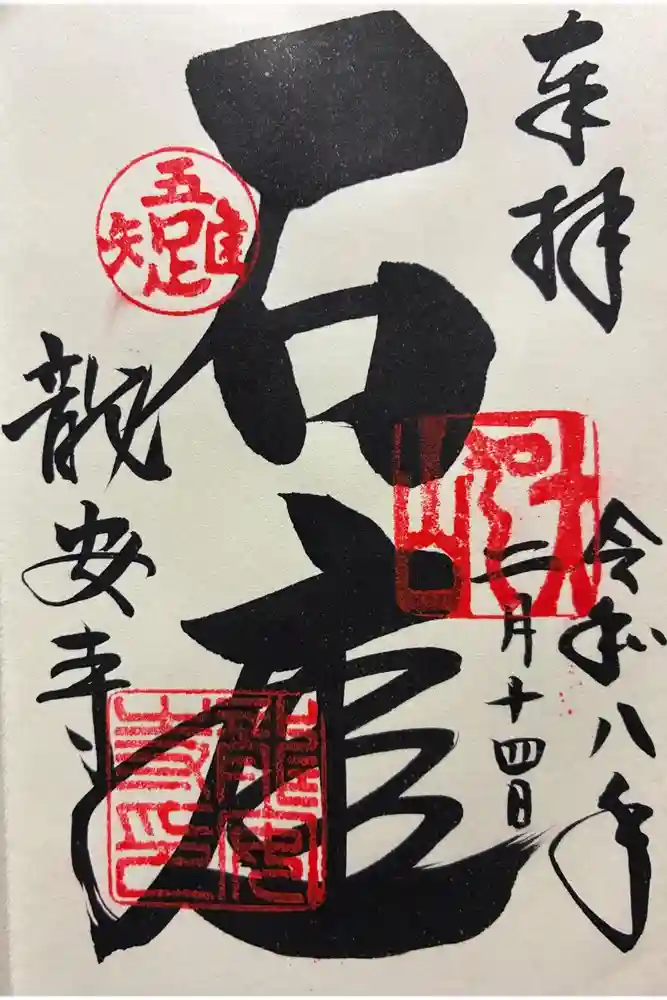 奉拝
令和八年
二月十四日
石庭
吾唯足知
龍安寺